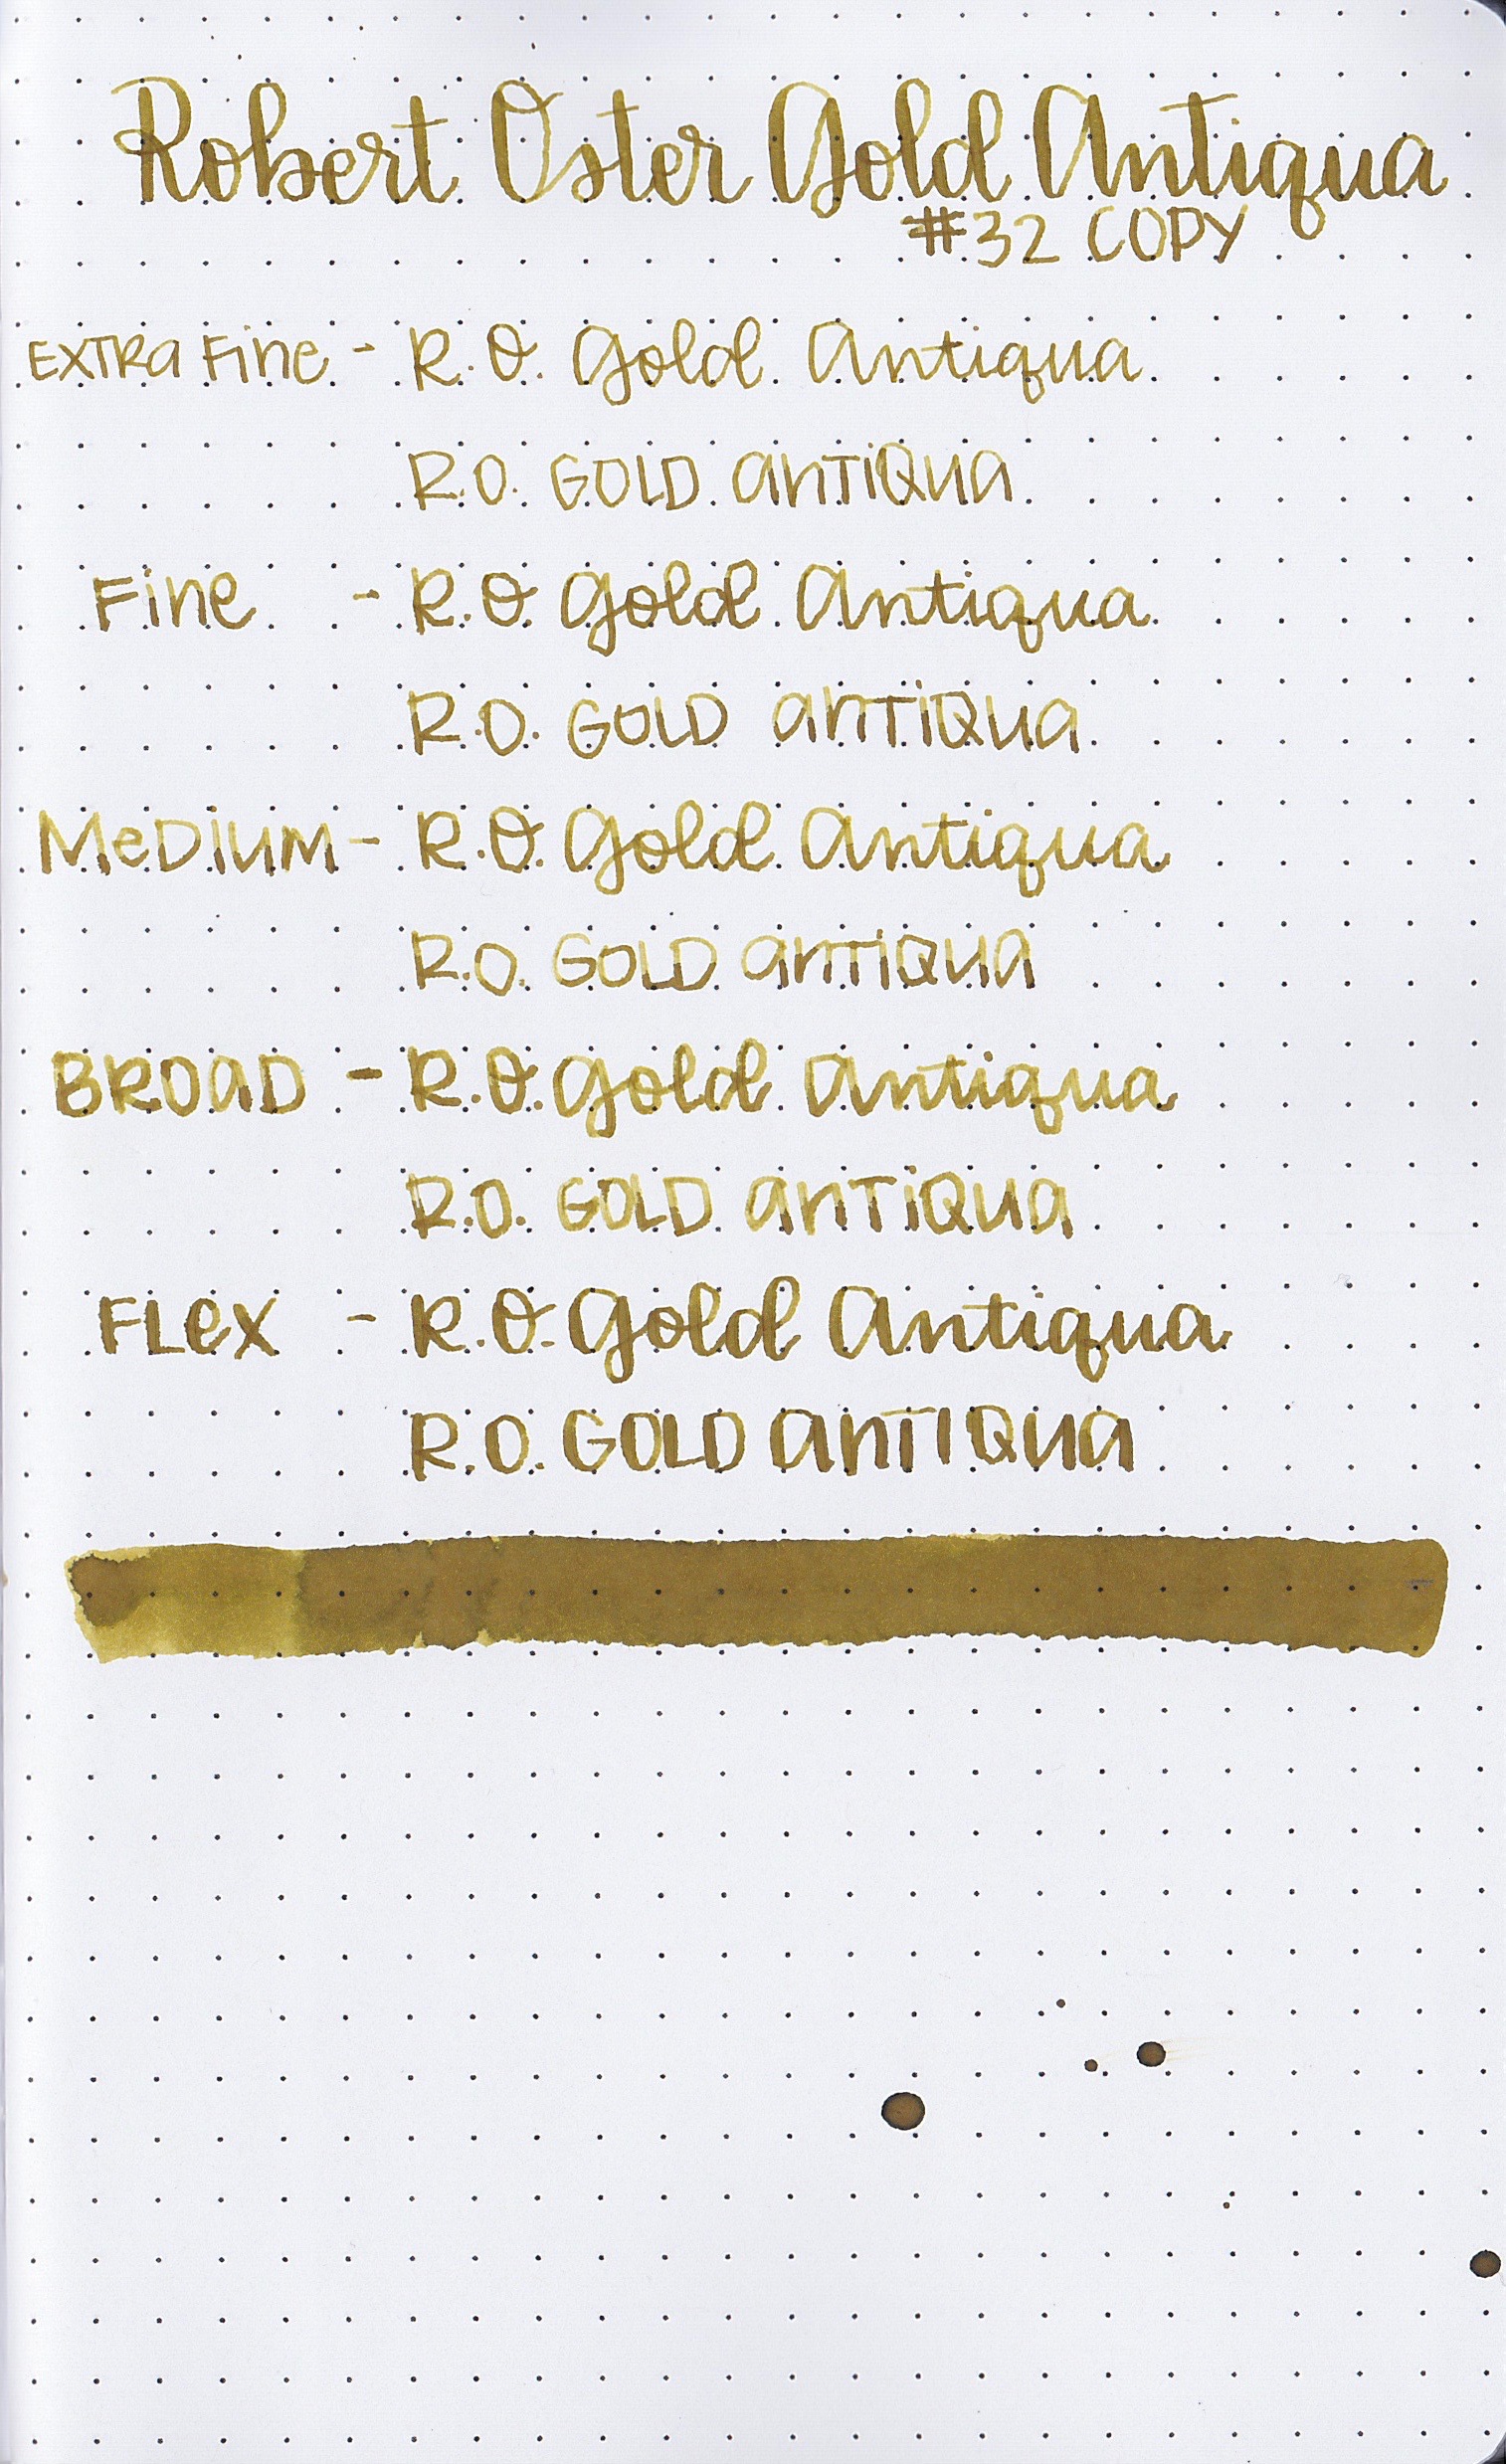 Robert Oster Gold Antiqua
#32 COPY
EXTRA FINE - R.O. Gold Antiqua
R.O. GOLD ANTIQUA
FINE - R.O. Gold Antiqua
R.O. GOLD ANTIQUA
MEDIUM - R.O. Gold Antiqua
R.O. GOLD ANTIQUA
BROAD - R.O. Gold Antiqua
R.O. GOLD ANTIQUA
FLEX - R.O. Gold Antiqua
R.O. GOLD ANTIQUA